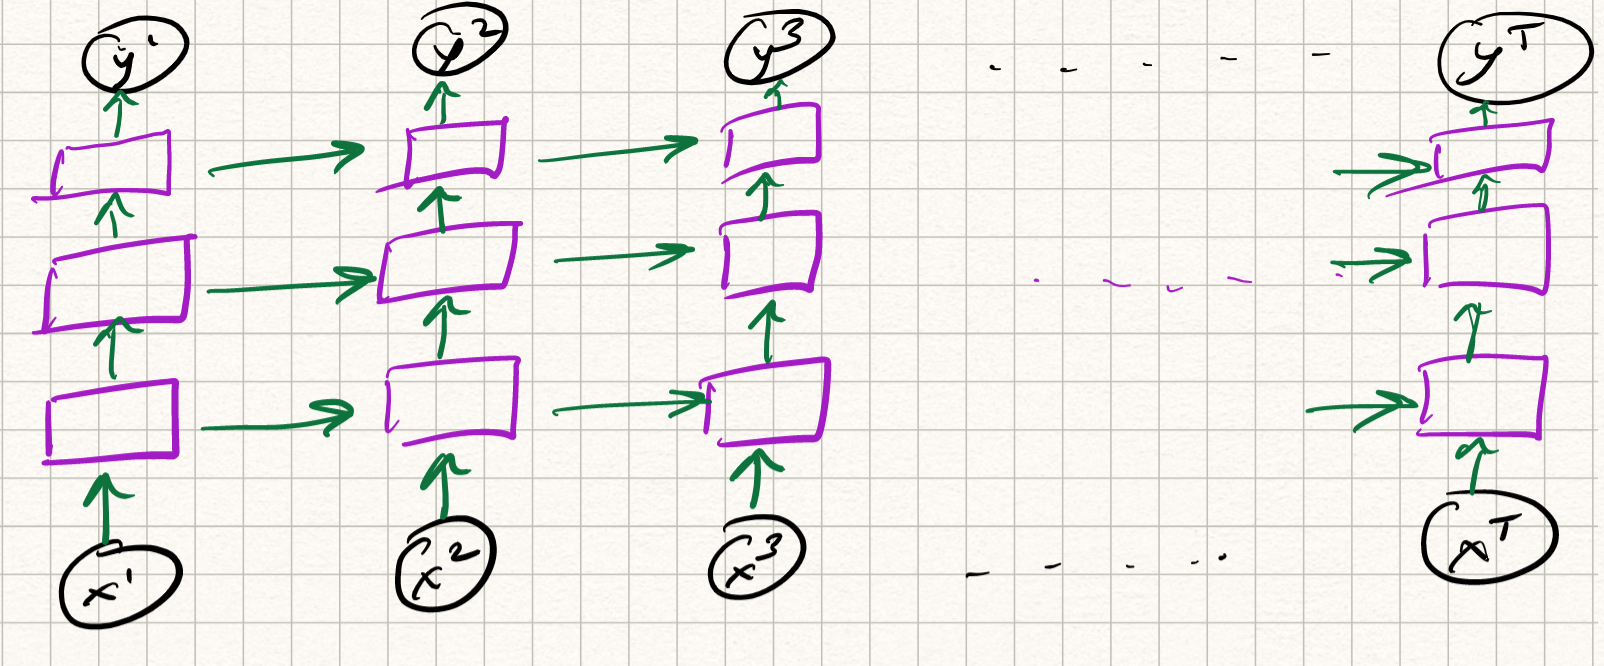 y¹ y² y³ yᵀ
x¹ x² x³ xᵀ